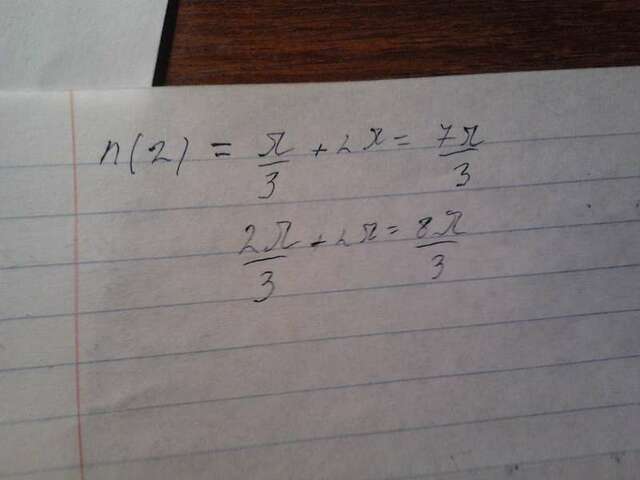 n(2) = π/3 + 2π = 7π/3
2π/3 + 2π = 8π/3